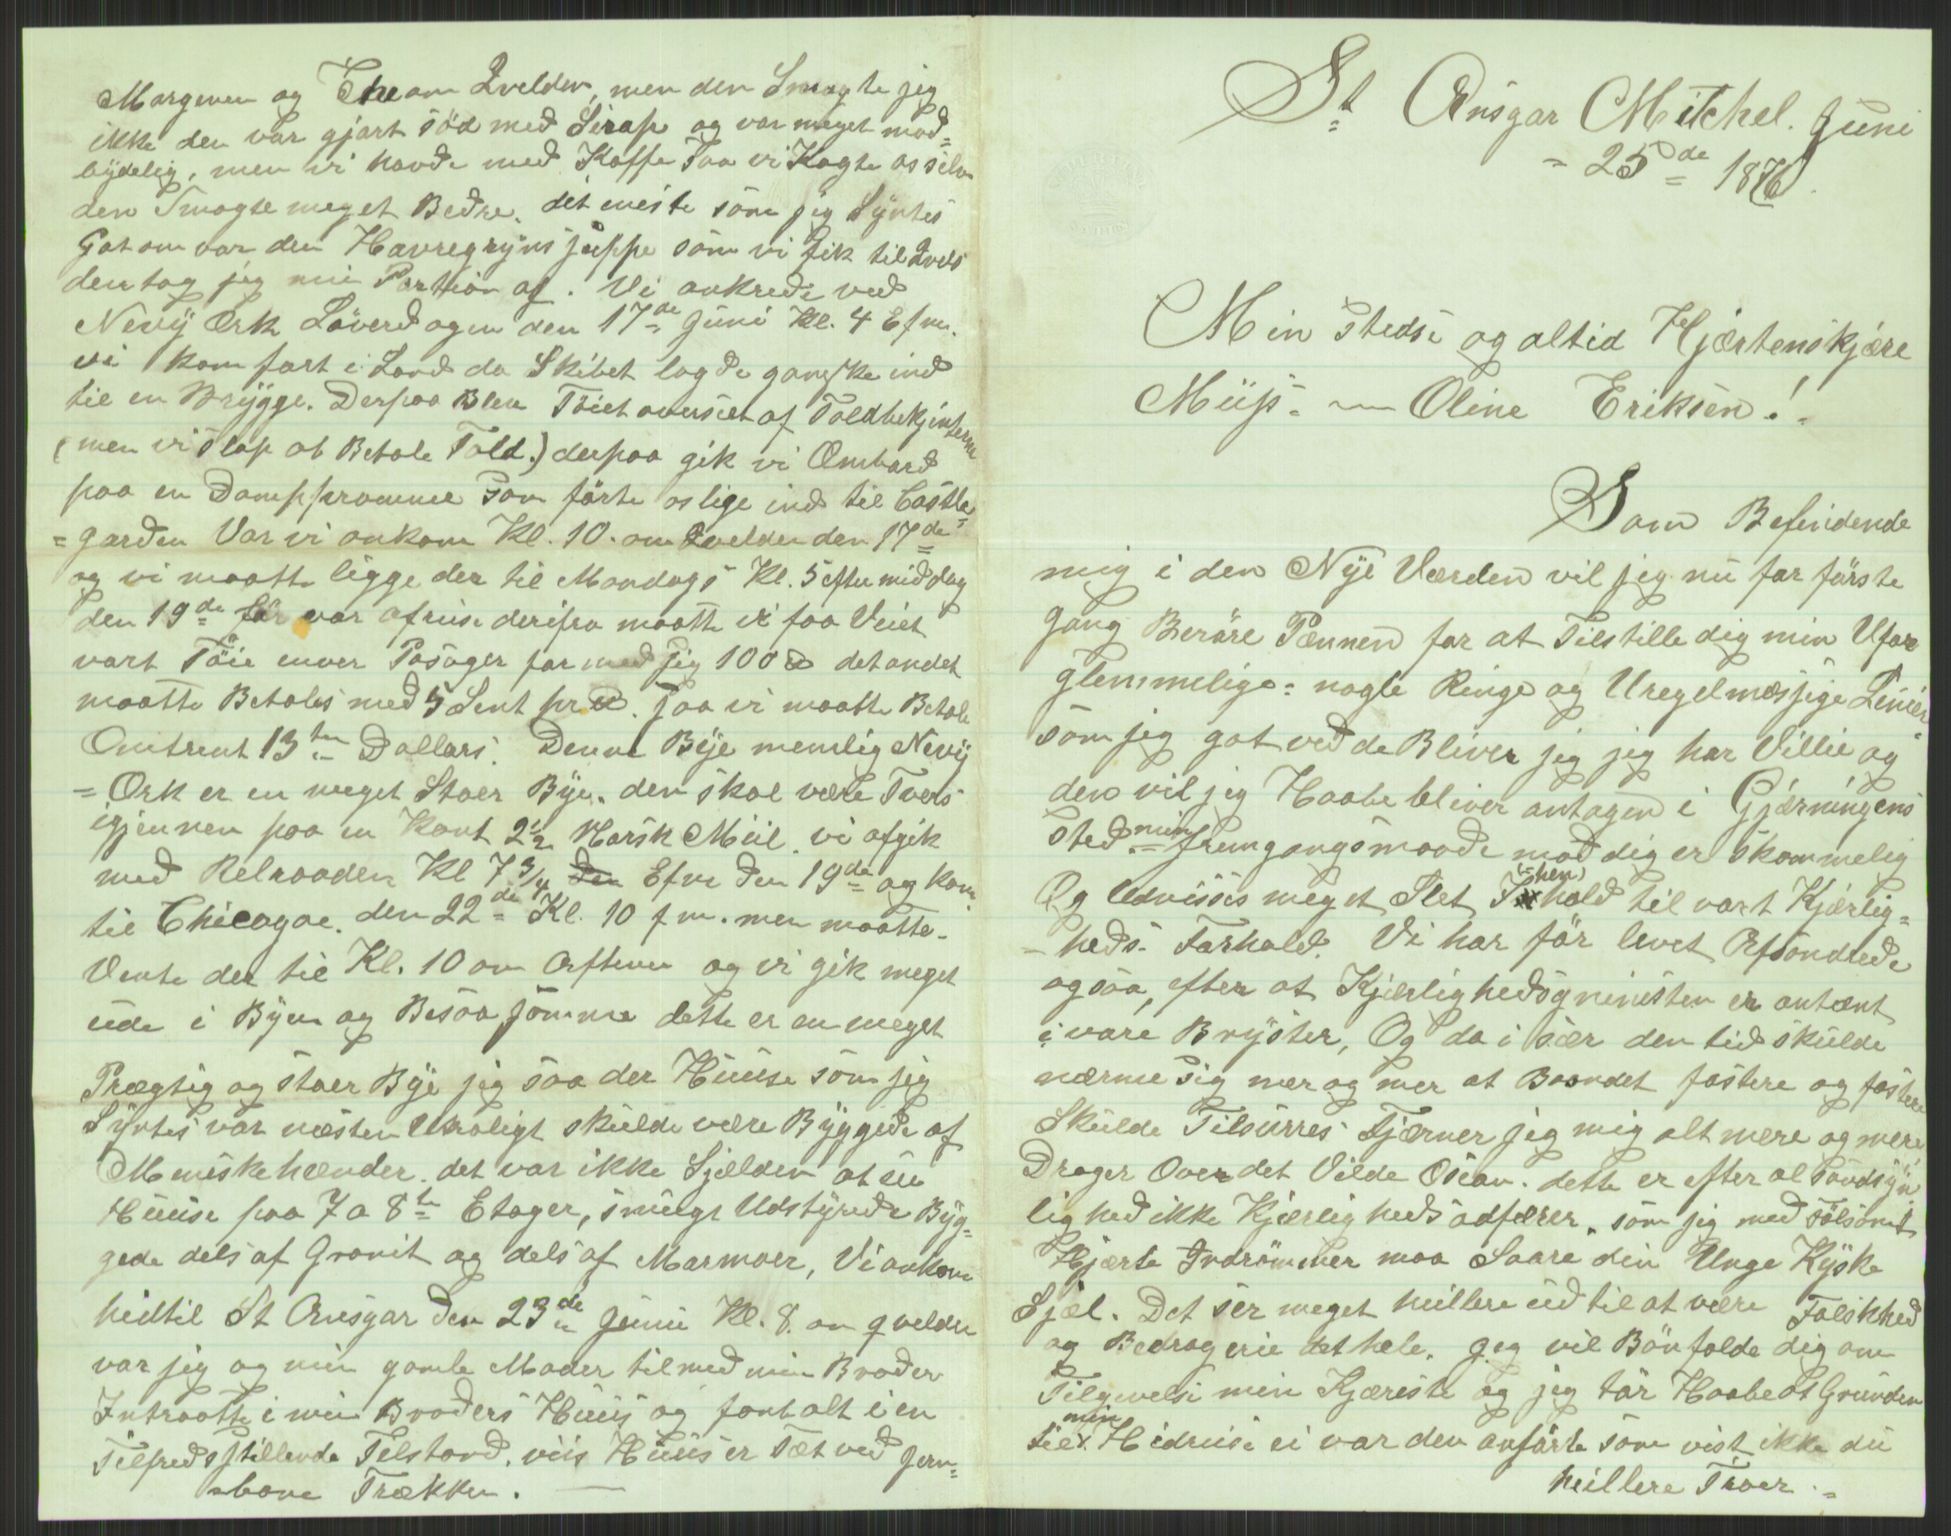 Morgenen og The om Qvelden, men den Smagte jeg
ikke den var gjort söd med Sirap og var meget mod-
bydelig, men vi havde med Kaffe Saa vi Kogte os selv
den Smagte meget Bedre. det meste som jeg Syntes
Got om var den Havregrynssuppe som vi fik til Qvels
den tog jeg min Portion af. Vi ankrede ved
Nevy Ork Löverdagen den 17de Juni Kl. 4 Efm.
vi kom fort i Land da Skibet lagde ganske ind
til en Brygge. Derpaa Blev Töiet overseet af Toldbetjenterne
(men vi slap at Betale Told.) derpaa gik vi Ombord
paa en Dampprammme som förte os lige ind til Castle
= garden Vor vi ankom Kl. 10. om Qvelden den 17de
og vi maatte ligge der til Mandags Kl. 5 eftermiddag
den 19de för vor afreise derifra maatte vi faa Veiet
vort Töie enver Pasager for med sig 100 ℔ det andet
maatte Betales med 5 Sent pr ℔. saa vi maatte Betale
Omtrent 13ten Dollars. Denne Bye nemlig Nevy
= Ork er en meget Stoer Bye. den skal være Tvers
igjennen paa en Kant 2½ Norsk Miil. vi afgik
med Relraaden Kl 7¾ den Efm den 19de og kom
til Chicagoe. den 22de Kl. 10 fm. men maatte
Vente der til Kl. 10 om Aftenen og vi gik meget
ude i Byen og Besaa somme dette er en meget
Prægtig og stoer Bye jeg saa der Huuse som jeg
Syntes var næsten Uraligt skulde være Byggede af
Meniskehænder. det var ikke Sjælden at see
Huuse paa 7 a 8te Etager, smugt Udstyrede Byg-
gede dels af Granit og dels af Marmoer, Vi ankom
hidtil St Ansgar den 23de Juni Kl. 8. om qvelden
var jeg og min gamle Moder tilmed min Broder
Intraatte i min Broders Huus og fant alt i en
Tilfredsstillende Tilstand. viis Huus er Tæt ved Jern-
bane Trækken.
St Ansgar Mitchel. Juni
= 25de = 1876.
Min Stedse og altid Hjærtenskjære
Miss. — Oline Eriksen!
Som Befindende
mig i den Nye Verden vil jeg nu for förste
gang Beröre Pænnen for at Tilstille dig min Ufor
glemmelige = nogle Ringe og Uregelmæssige Linier
som jeg got ved de Bliver jeg jeg har Villie og
den vil jeg Haabe bliver antagen i Gjærningens
sted. = min fremgangsmaade mod dig er skammelig
Og Udvisses meget Slet (hen) hold til vort Kjærlig-
- heds Forhold. Vi har för levet Afsondrede
ogsaa, efter at Kjærlighedsgnnisten er antænt
i vore Bryster, Og da i sær den tid skulde
nærme sig mer og mer at Baandet fastere og fastere
Skulde Tilsurres Fjærner jeg mig alt mere og mere
Drager Over det Vilde Osean. dette er efter al Sandsyn
lighed ikke Kjærligheds adfærer. som jeg med fölsomt
Hjærte Indrömmer maa Saare din Unge Kyske
Sjæl. Det ser meget heillere ud til at være Falskhed
og Bedragerie det hele. Jeg vil Bönfalde dig om
Tilgivelse min Kjæreste og jeg tör Haabe at Grunden
til min Hidreise ei var den anförte som vist ikke du
heillere Troer.